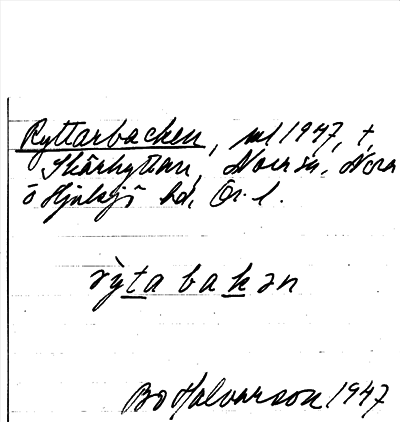 Ryttarbacken, ul 1947, t,
Skärhyttan, Nora sn, Nora
o Hjulsjö hd, Ör. l.
rỳtabakən
Bo Halvarson 1947